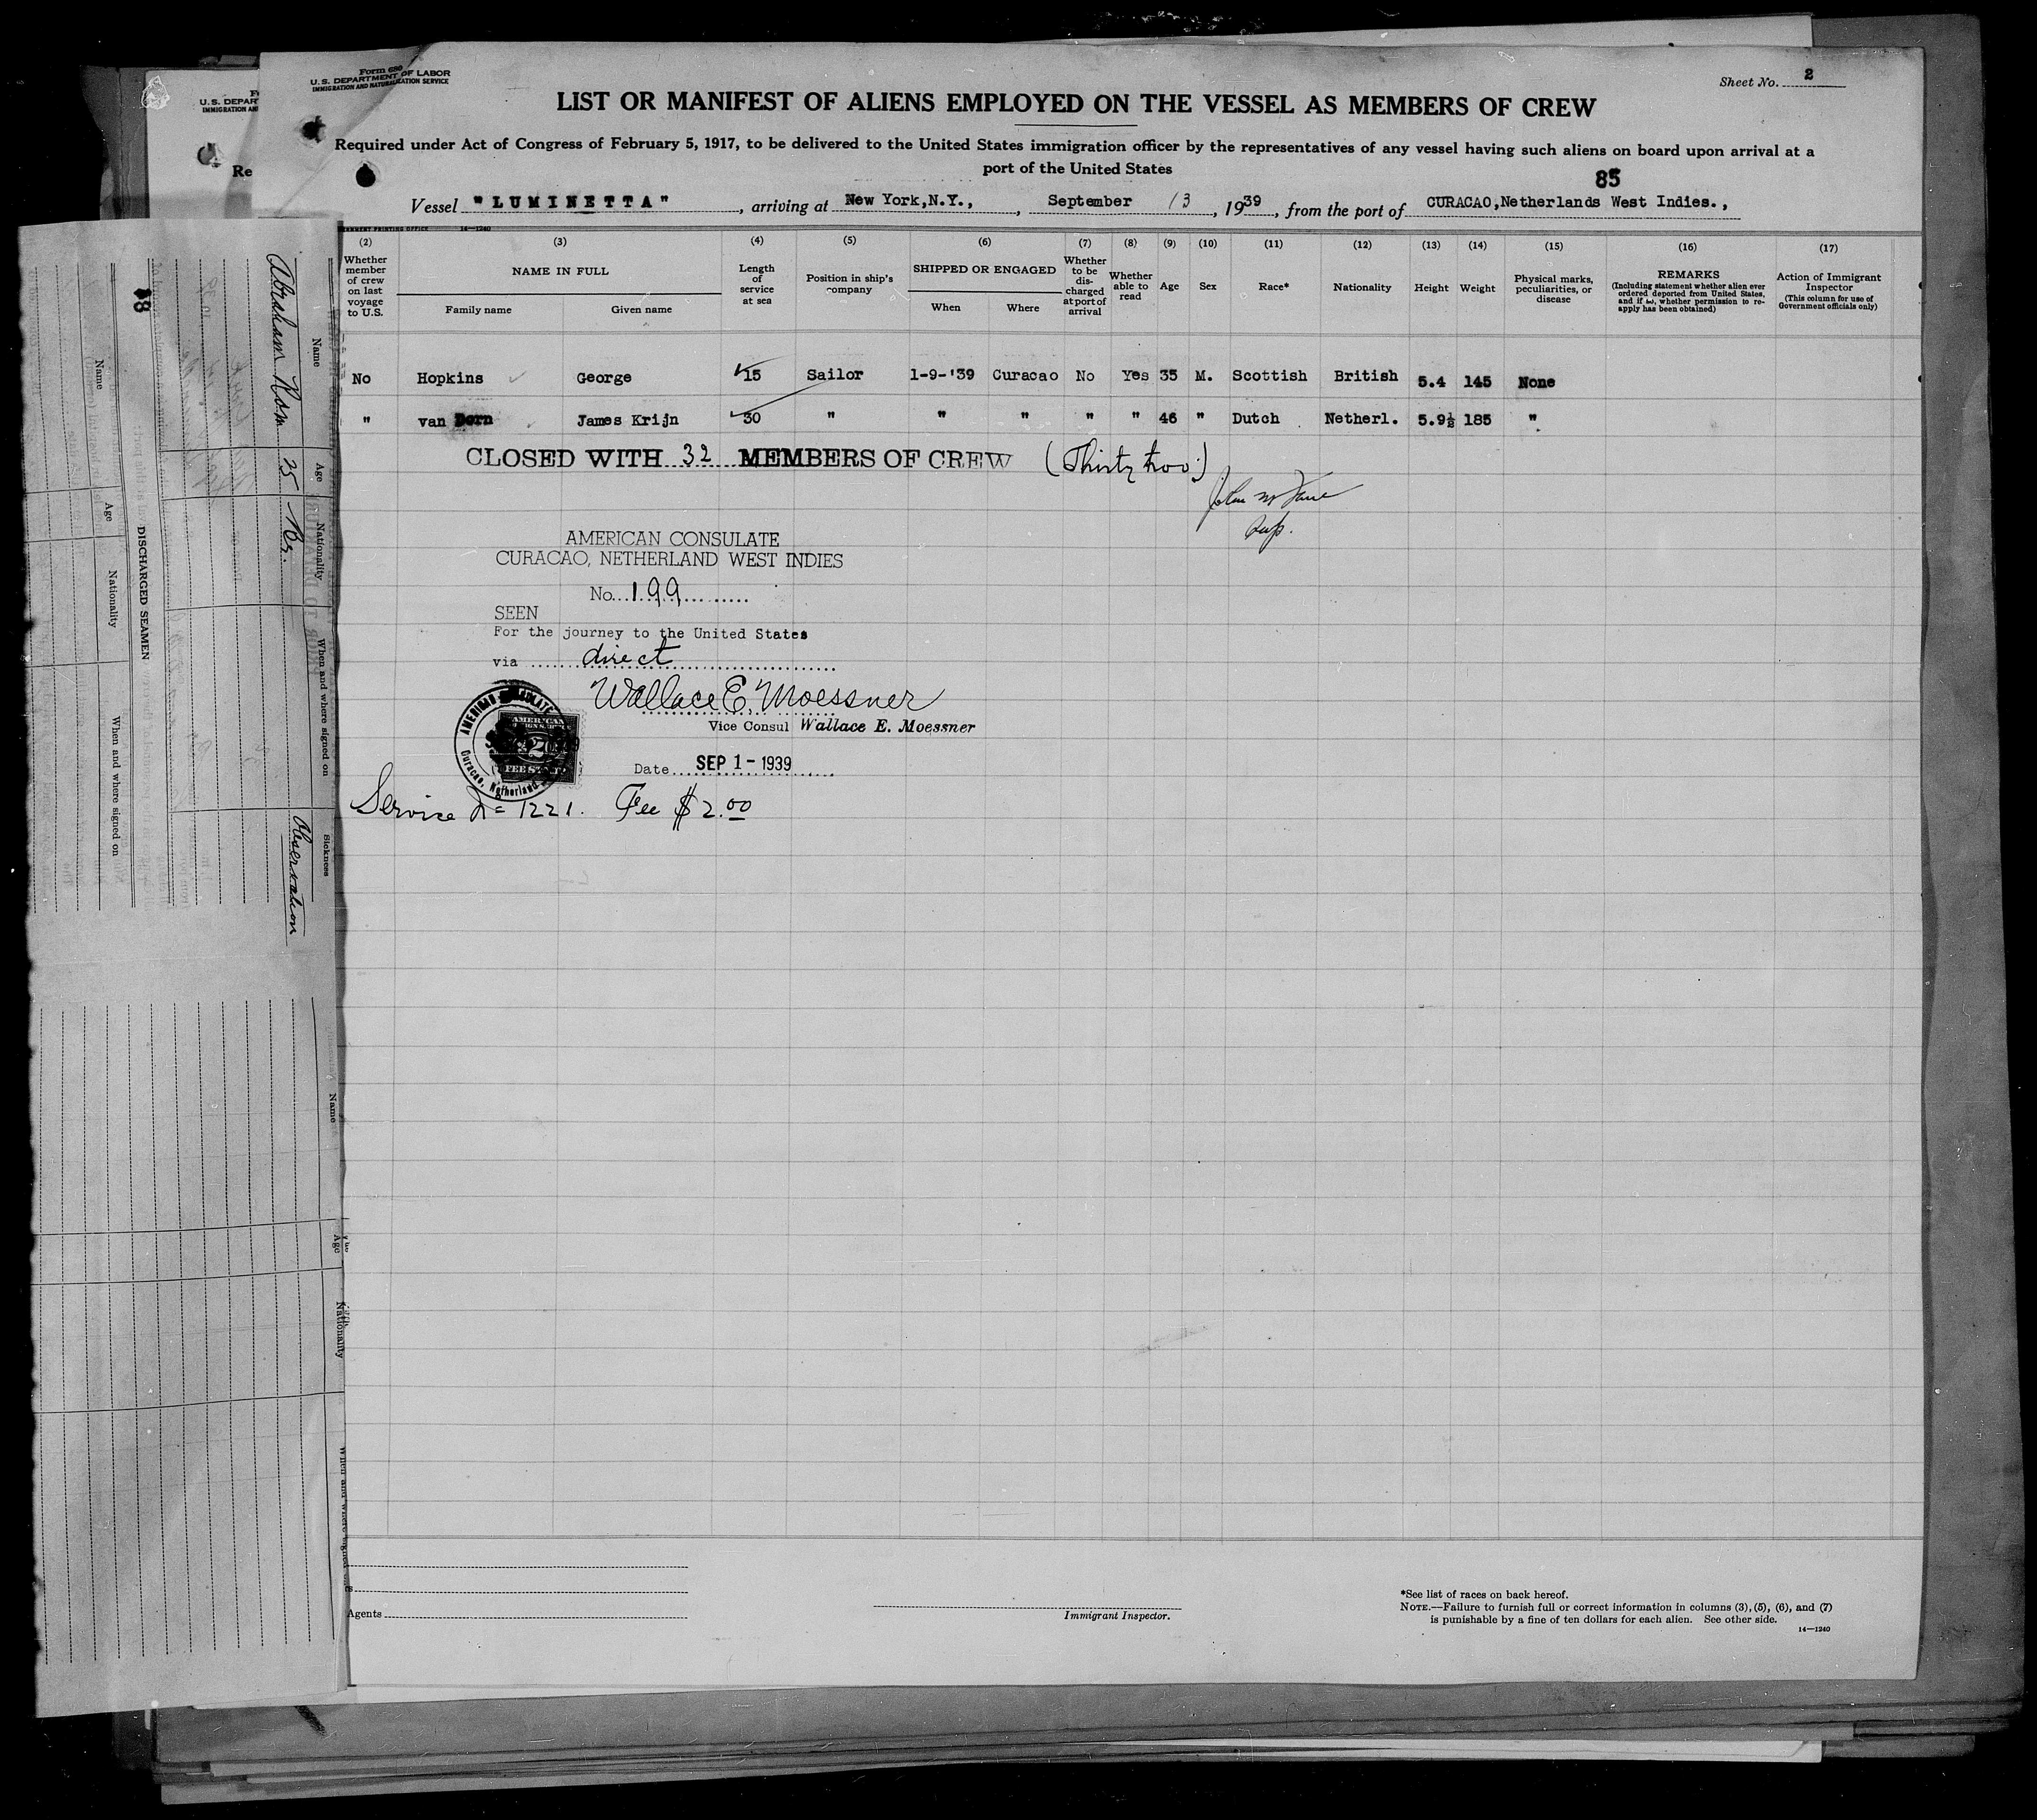 Form 680
U.S. DEPARTMENT OF LABOR
IMMIGRATION AND NATURALIZATION SERVICE
Sheet No. 2
LIST OR MANIFEST OF ALIENS EMPLOYED ON THE VESSEL AS MEMBERS OF CREW
Required under Act of Congress of February 5, 1917, to be delivered to the United States immigration officer by the representatives of any vessel having such aliens on board upon arrival at a
port of the United States
85
Vessel "LUMINETTA", arriving at New York,N.Y., , September 13, 1939, from the port of CURACAO,Netherlands West Indies.,
(2) (3) (4) (5) (6) (7) (8) (9) (10) (11) (12) (13) (14) (15) (16) (17)
Whether member of crew on last voyage to U.S.
NAME IN FULL
Family name Given name
Length of service at sea
Position in ship's company
SHIPPED OR ENGAGED
When Where
Whether to be discharged at port of arrival
Whether able to read
Age
Sex
Race*
Nationality
Height
Weight
Physical marks, peculiarities, or disease
REMARKS
(Including statement whether alien ever ordered deported from United States, and if so, whether permission to re-apply has been obtained)
Action of Immigrant Inspector
(This column for use of Government officials only)
No Hopkins George 15 Sailor 1-9-'39 Curacao No Yes 35 M. Scottish British 5.4 145 None
" van Dorn James Krijn 30 " " " " " 46 " Dutch Netherl. 5.9½ 185 "
CLOSED WITH 32 MEMBERS OF CREW (Thirty two)
AMERICAN CONSULATE
CURACAO, NETHERLAND WEST INDIES
No. 199
SEEN
For the journey to the United States
via direct
Wallace E. Moessner
Vice Consul Wallace E. Moessner
Date SEP 1-1939
Service No 1221. Fee $2.00
Agents
Immigrant Inspector.
*See list of races on back hereof.
NOTE.—Failure to furnish full or correct information in columns (3), (5), (6), and (7)
is punishable by a fine of ten dollars for each alien. See other side.
14—1240
DISCHARGED SEAMEN
Name Age Nationality When and where signed on
Name Age Nationality When and where signed on Sickness
Abraham 25 Br. Observation
Name Age Nationality